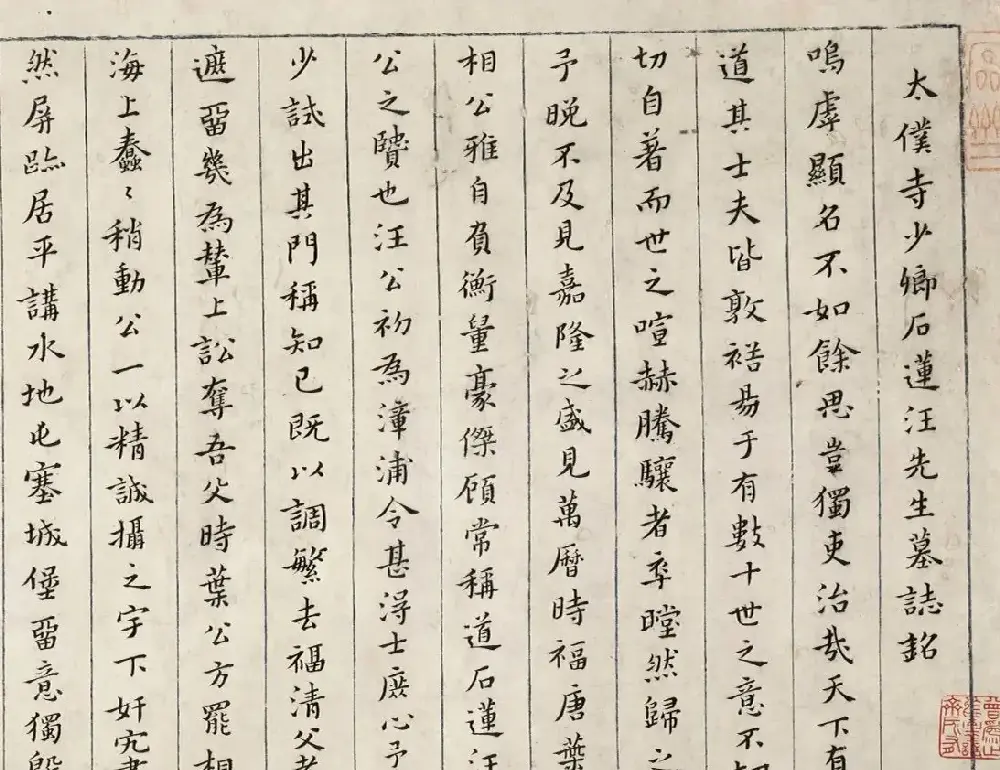 太僕寺少卿石蓮汪先生墓誌銘
嗚虖顯名不如餘思豈獨吏治哉天下有
道其士夫皆敦褆易于有數十世之意不
切自著而世之喧赫騰驤者卒瞠然歸之
予晚不及見嘉隆之盛見萬曆時福唐葉
相公雅自負衡量豪傑顧常稱道石蓮汪
公之隤也汪公初為漳浦令甚得士庶心予
少試出其門稱知己既以調繁去福清父老
遮留幾為輦上訟奪吾父時葉公方罷相
海上蠢〻稍動公一以精誠攝之宇下奸宄
然屏跡居平講水地屯塞城堡留意獨